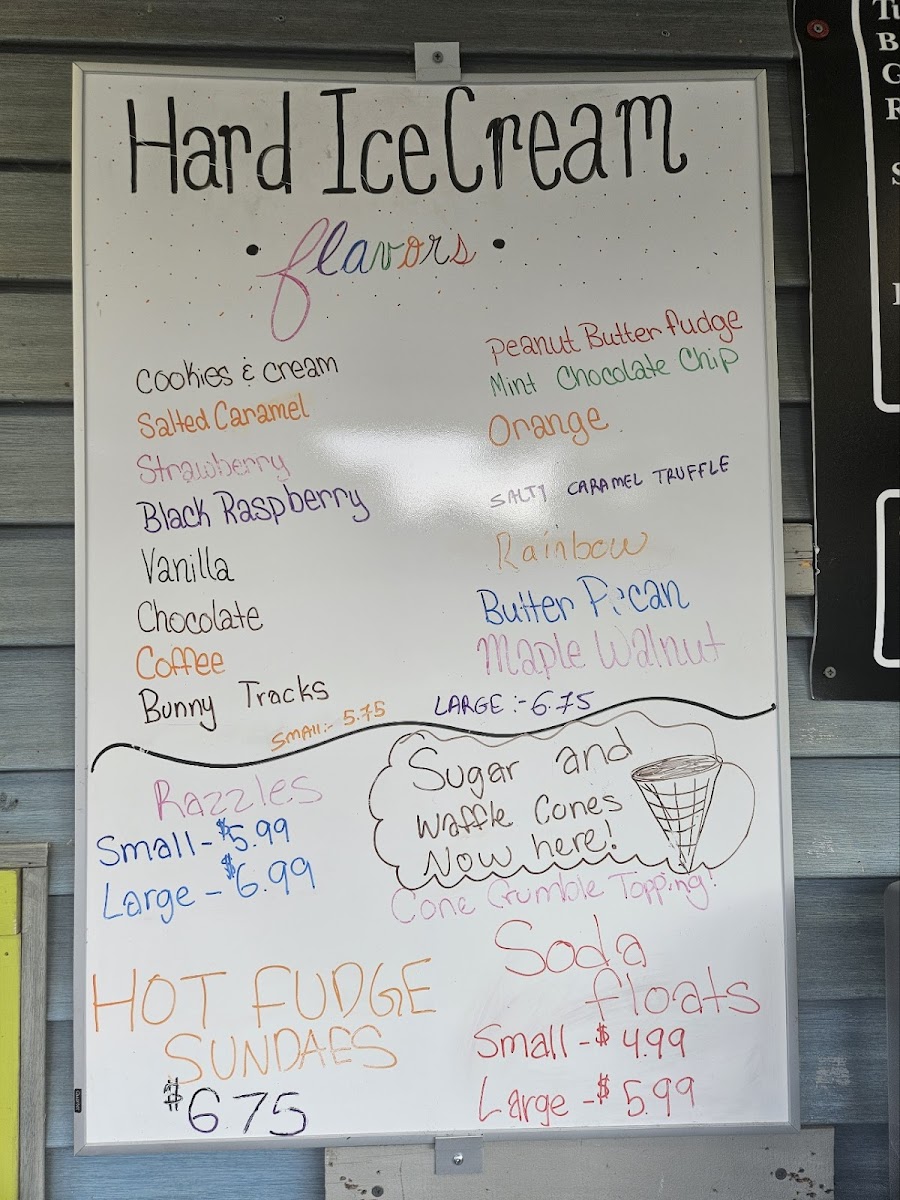 Hard Ice Cream
• flavors •
Cookies & Cream
Salted Caramel
Strawberry
Black Raspberry
Vanilla
Chocolate
Coffee
Bunny Tracks
Small:- 5.75
Peanut Butter fudge
Mint Chocolate Chip
Orange
SALTY CARAMEL TRUFFLE
Rainbow
Butter Pecan
Maple Walnut
LARGE:- 6.75
Razzles
Small - $5.99
Large - $6.99
Sugar and
Waffle Cones
Now here!
Cone Crumble Topping!
HOT FUDGE
SUNDAES
$6.75
Soda
floats
Small - $4.99
Large - $5.99